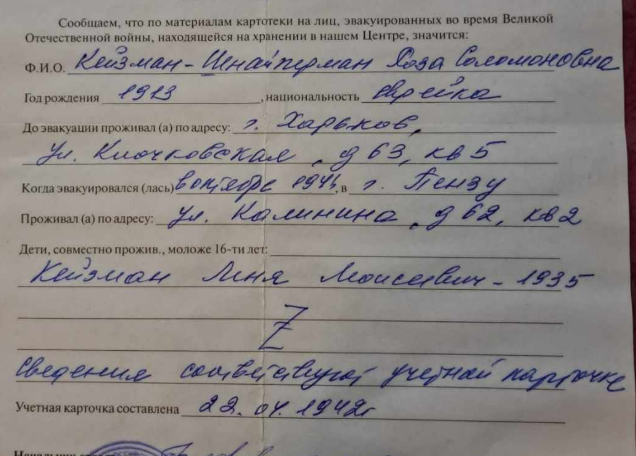 Сообщаем, что по материалам картотеки на лиц, эвакуированных во время Великой
Отечественной войны, находящейся на хранении в нашем Центре, значится:
Ф.И.О. Кейзман-Шнайперман Роза Соломоновна
Год рождения 1913, национальность еврейка
До эвакуации проживал (а) по адресу: г. Харьков,
ул. Клочковская, д 63, кв 5
Когда эвакуировался (лась) в октябре 1941, в г. Пензу
Проживал (а) по адресу: ул. Калинина, д 62, кв 2
Дети, совместно прожив., моложе 16-ти лет:
Кейзман Линя Моисеевич - 1935
Z
сведения соответствуют учетной карточке
Учетная карточка составлена 22. 04. 1942г